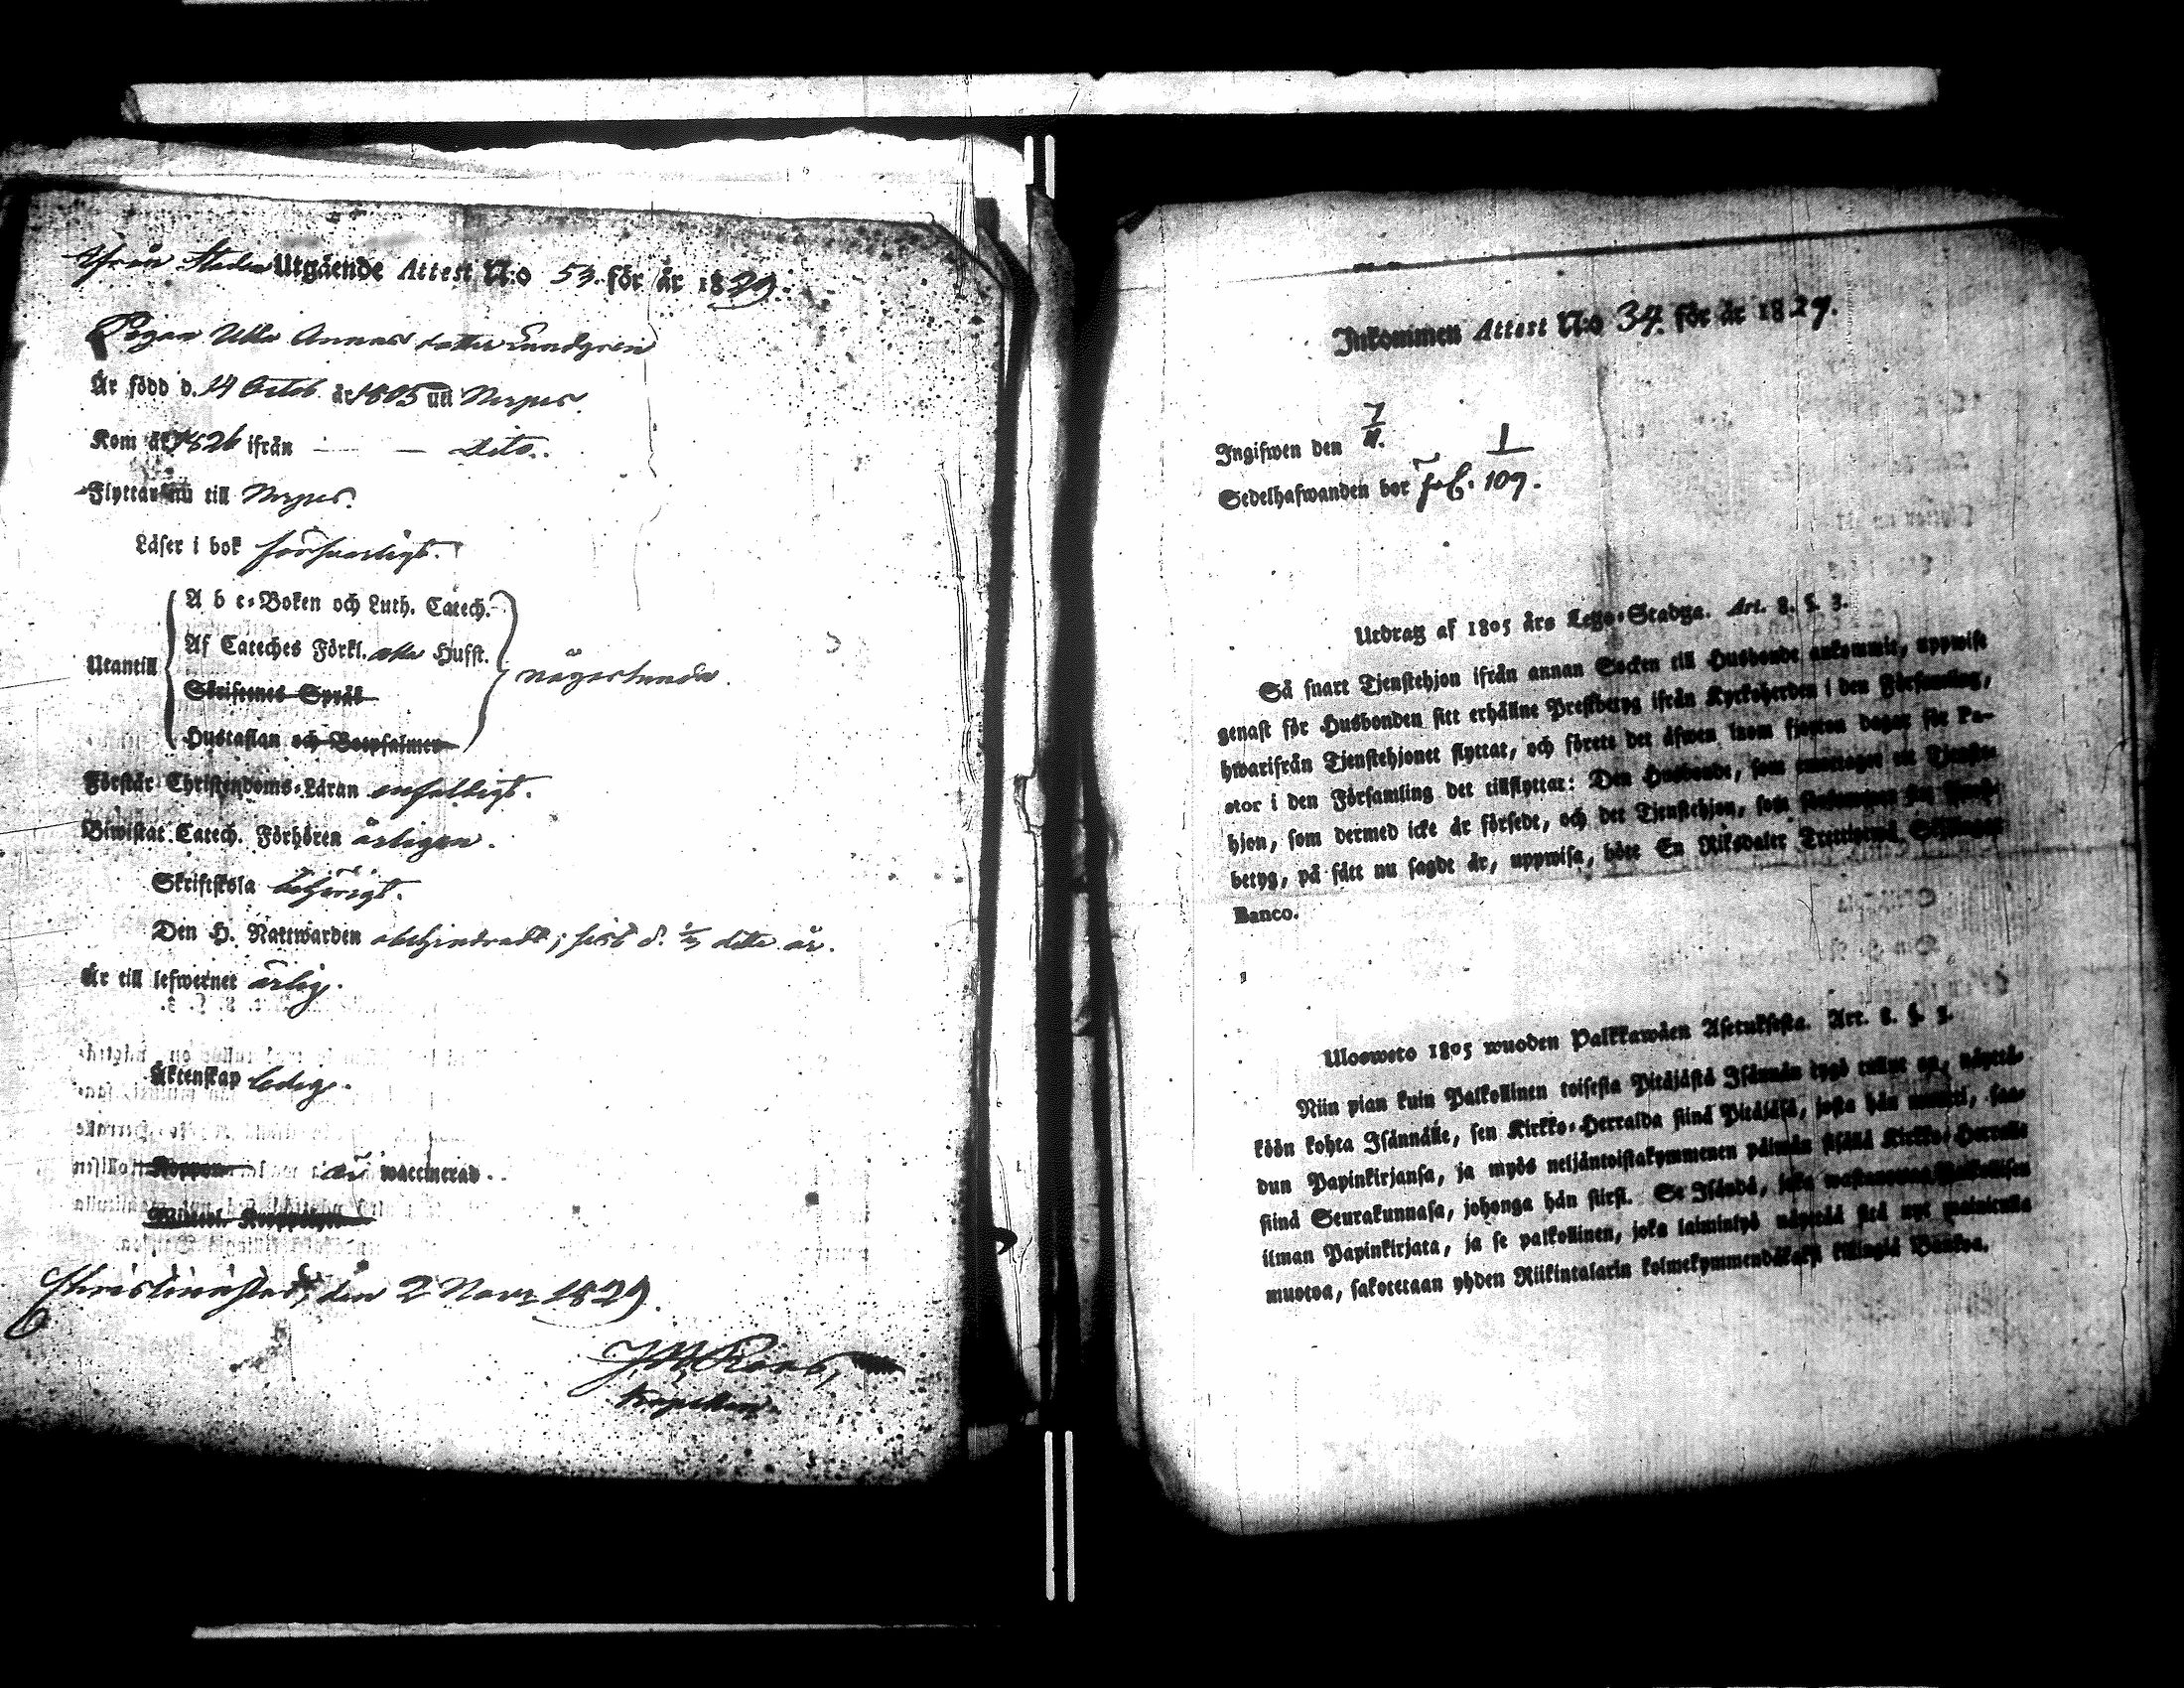 Ifrån Staden Utgående Attest N:o 53. för år 1829.
Pigan Ulla Annas dotter Lundgren
Är född d. 14 Octob. år 1805 uti Nerpes.
Kom år 1826 ifrån — — dito.
Flyttar nu till Nerpes.
Läser i bok försvarligt.
A b c-Boken och Luth. Catech.
Af Cateches Förkl. Husst.
Utantill
någorlunda.
Skriftenes Språk
Hustaflan och Botpsalmer
Förstår Christendoms-Läran enfaldigt.
Biwistat Catech. Förhören årligen.
Skriftskola behörigt.
Den H. Nattwarden obehindradt; sist d. detta år.
Är till lefwernet ärlig.
Äktenskap ledig.
Koppor är waccinerad.
Christinæstad, den 2 Novr 1829.
Kapellan.
Inkommen Attest N:o 34. för år 1829.
Ingifwen den 7/11.
Sedelhafwanden bor fol. 1/109.
Utdrag af 1805 års Lego-Stadga. Art. 8. §. 3.
Så snart Tjenstehjon ifrån annan Socken till Husbonde ankommit, uppwise
genast för Husbonden sitt erhållne Prestbetyg ifrån Kyrkoherden i den Församling,
hwarifrån Tjenstehjonet flyttat, och förete det äfwen inom fjorton dagar för Pa-
stor i den Församling det tillflyttar: Den Husbonde, som emottager ett Tjenste-
hjon, som dermed icke är försedt, och det Tjenstehjon, som försummar sitt
betyg, på sätt nu sagdt är, uppwisa, böte En Riksdaler Trettiotwå Skillingar
Banco.
Ulosweto 1805 wuoden Palkkawäen Asetuksesta. Art. 8. §. 3.
Niin pian kuin Palkollinen toisesta Pitäjästä Isännän tygö tullut on, näyttä-
köön kohta Isännälle, sen Kirkko-Herralda siinä Pitäjäsä, josta hän muutti, saa-
dun Papinkirjansa, ja myös neljäntoistakymmenen päiwän sisällä Kirkko-Herralle
siinä Seurakunnasa, johonga hän siirsi. Se Isändä, joka wastaanottaa Palkollisen
ilman Papinkirjata, ja se palkollinen, joka laimintyö näyttää sitä nyt mainitulla
muotoa, sakotetaan yhden Riikintalarin kolmekymmendäkaksi killingiä Bankoa.